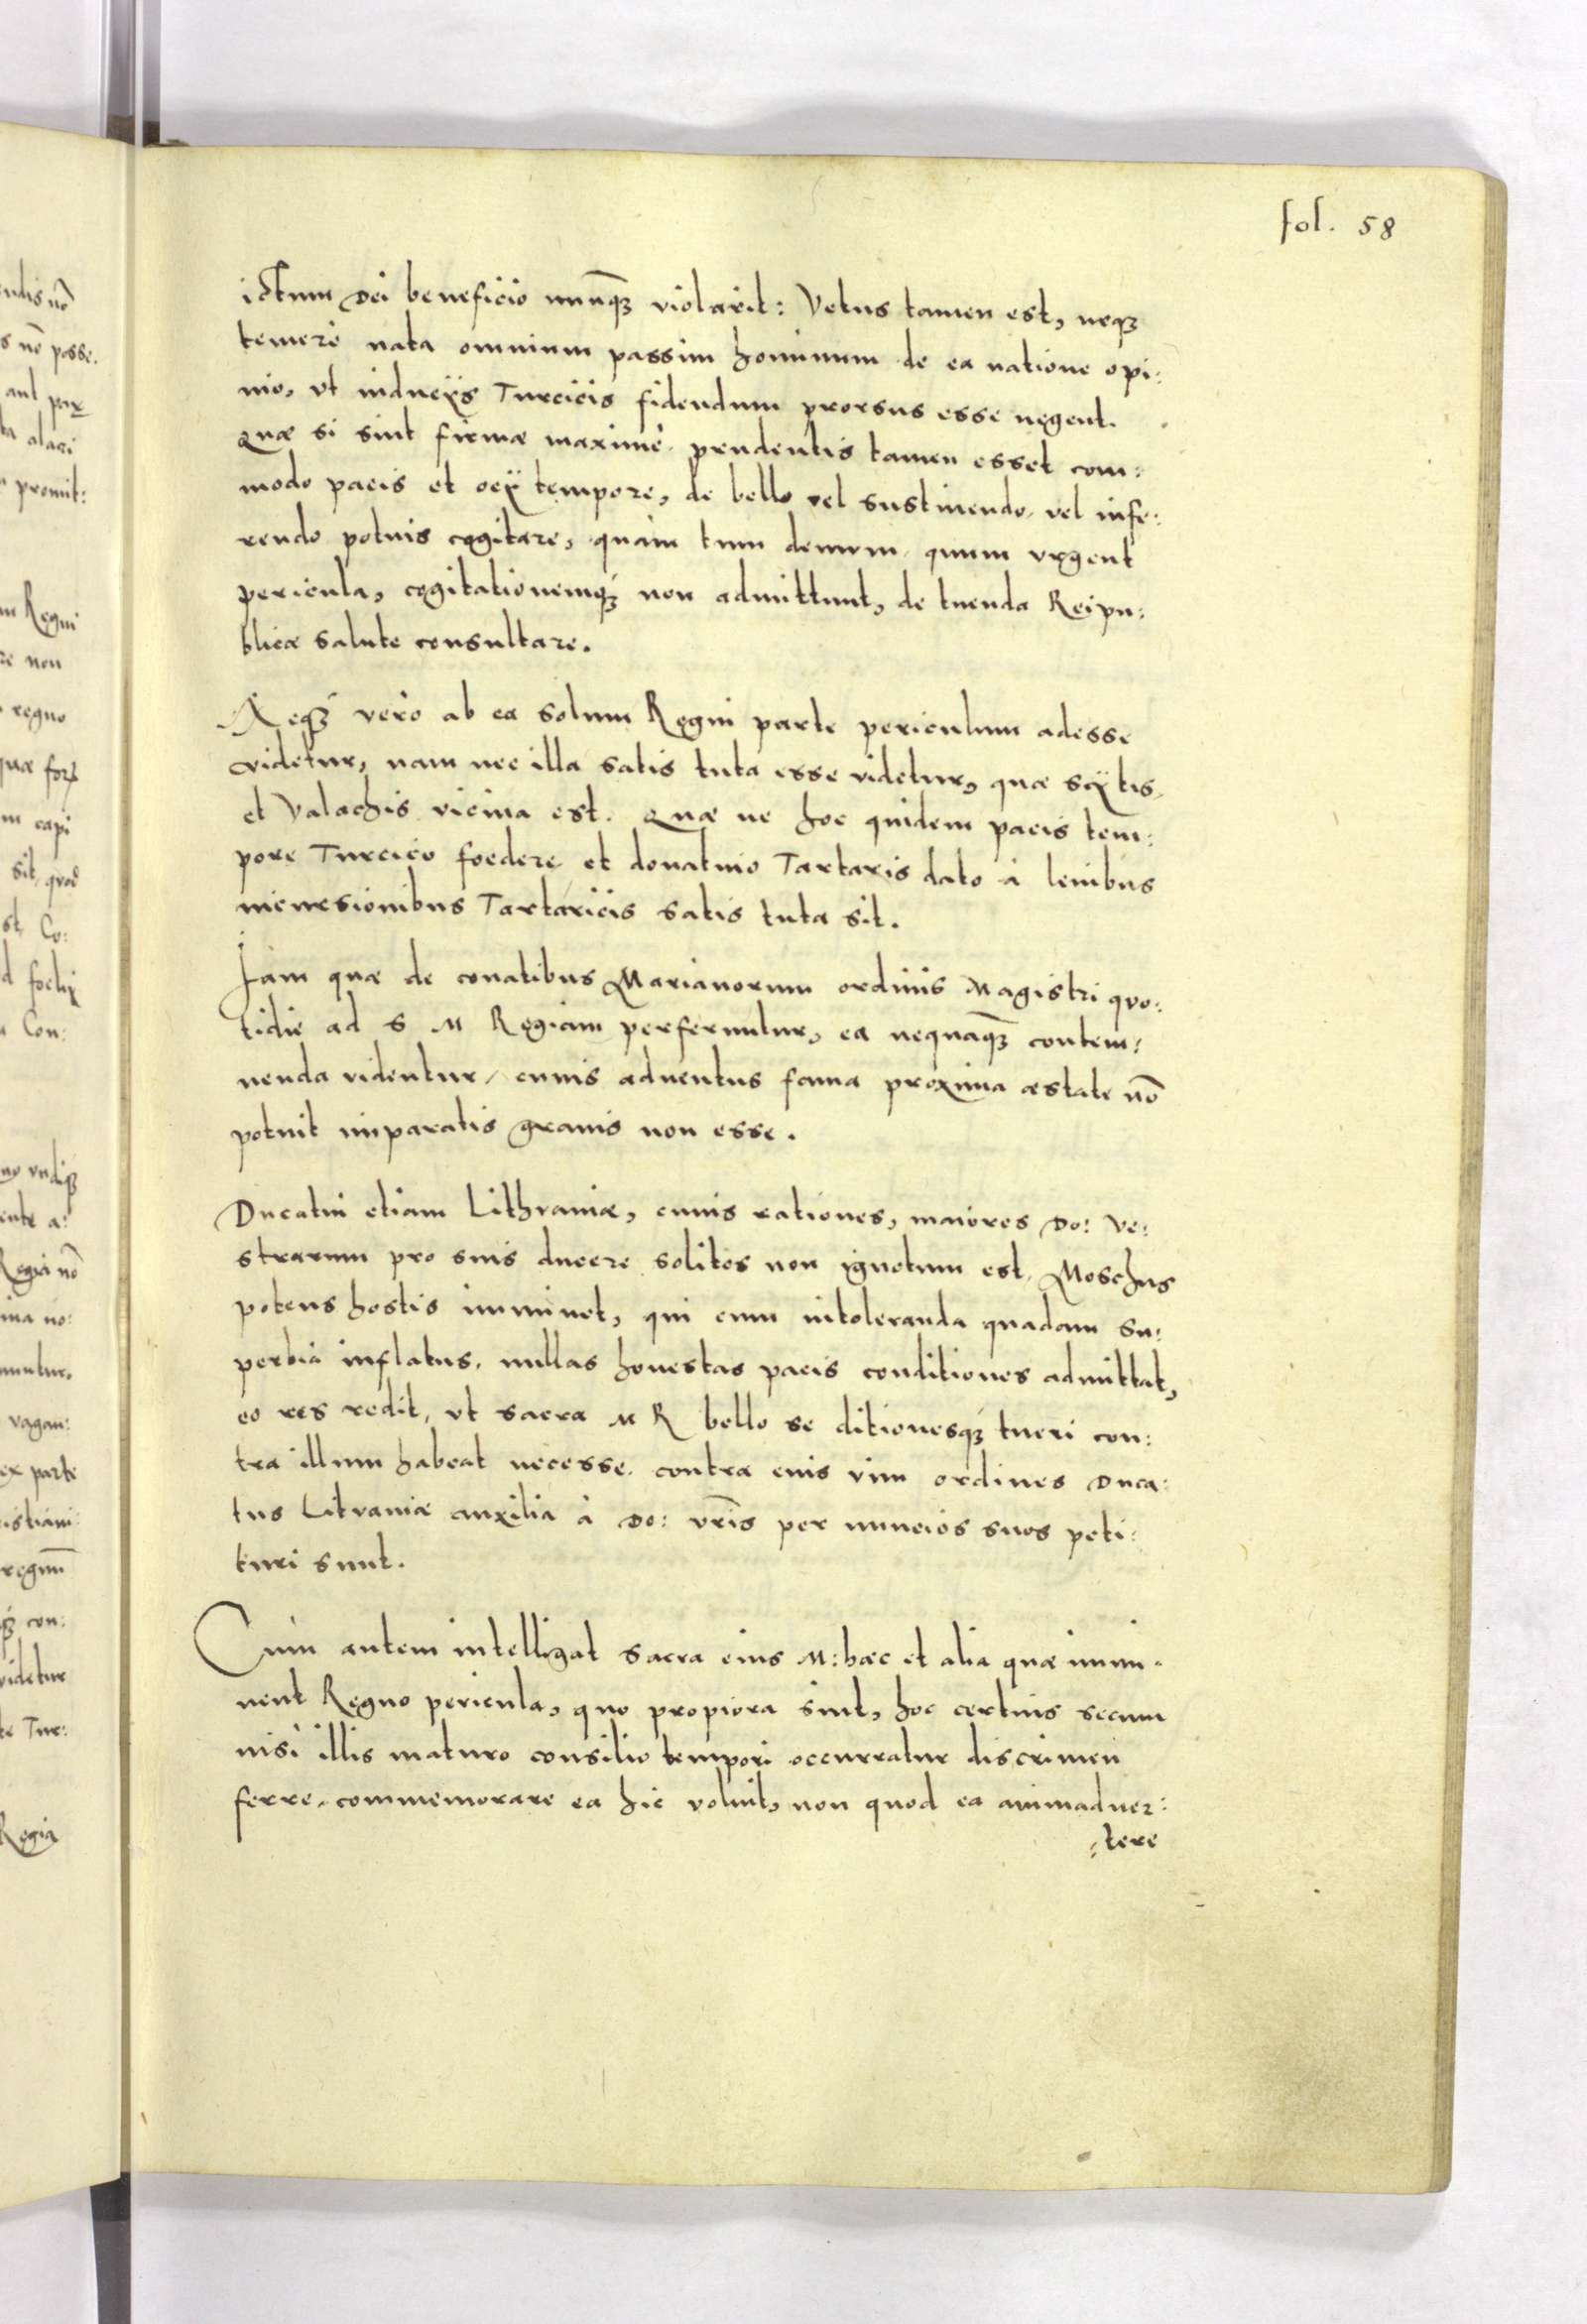 fol. 58
ictum Dei beneficio nunq̄ꝫ violarit: Vetus tamen est, neqꝫ
temerè nata omnium passim hominum de ea natione opi:
nio, vt inducÿs Turcicis fidendum prorsus esse negent.
Quæ si sint firmæ maximè, prudentis tamen esset com:
modo pacis et ocÿ tempore, de bello vel sustinendo, vel infe:
rendo potius cogitare, quàm tum demum quum vrgent
pericula, cogitationemqꝫ non admittunt, de tuenda Reipu:
blicæ salute consultare.
Neqꝫ verò ab ea solum Regni parte periculum adesse
videtur, nam nec illa satis tuta esse videtur, quæ Scÿtis,
et Valachis vicina est. Quæ ne hoc quidem pacis tem:
pore Turcico foedere et donatiuo Tartaris dato à leuibus
incursionibus Tartaricis satis tuta sit.
Iam quæ de conatibus Marianorum ordinis Magistri quo:
tidie ad S M Regiam perferuntur, ea nequaq̄ꝫ contem:
nenda videntur, cuius aduentus fama proxima æstate nō
potuit imparatis grauis non esse.
Ducatui etiam Lithvaniæ, cuius rationes, maiores Do: Ve:
strarum pro suis ducere solitos non ignotum est, Moschus
potens hostis imminet, qui cum intoleranda quadam su:
perbia inflatus, nullas honestas pacis conditiones admittat,
eo res redit, vt sacra M R bello se ditionesqꝫ tueri con:
tra illum habeat necesse, contra cuis vim ordines Duca:
tus Litvaniæ auxilia à Do: vr̄is per nuncios suos peti:
turi sunt.
Cum autem intelligat sacra eius M: hæc et alia quæ immi:
nent Regno pericula, quo propiora sint, hoc certius secum
nisi illis maturo consilio tempori occurratur discrimen
ferre, commemorare ea hic voluit, non quod ea animaduer:
:tere